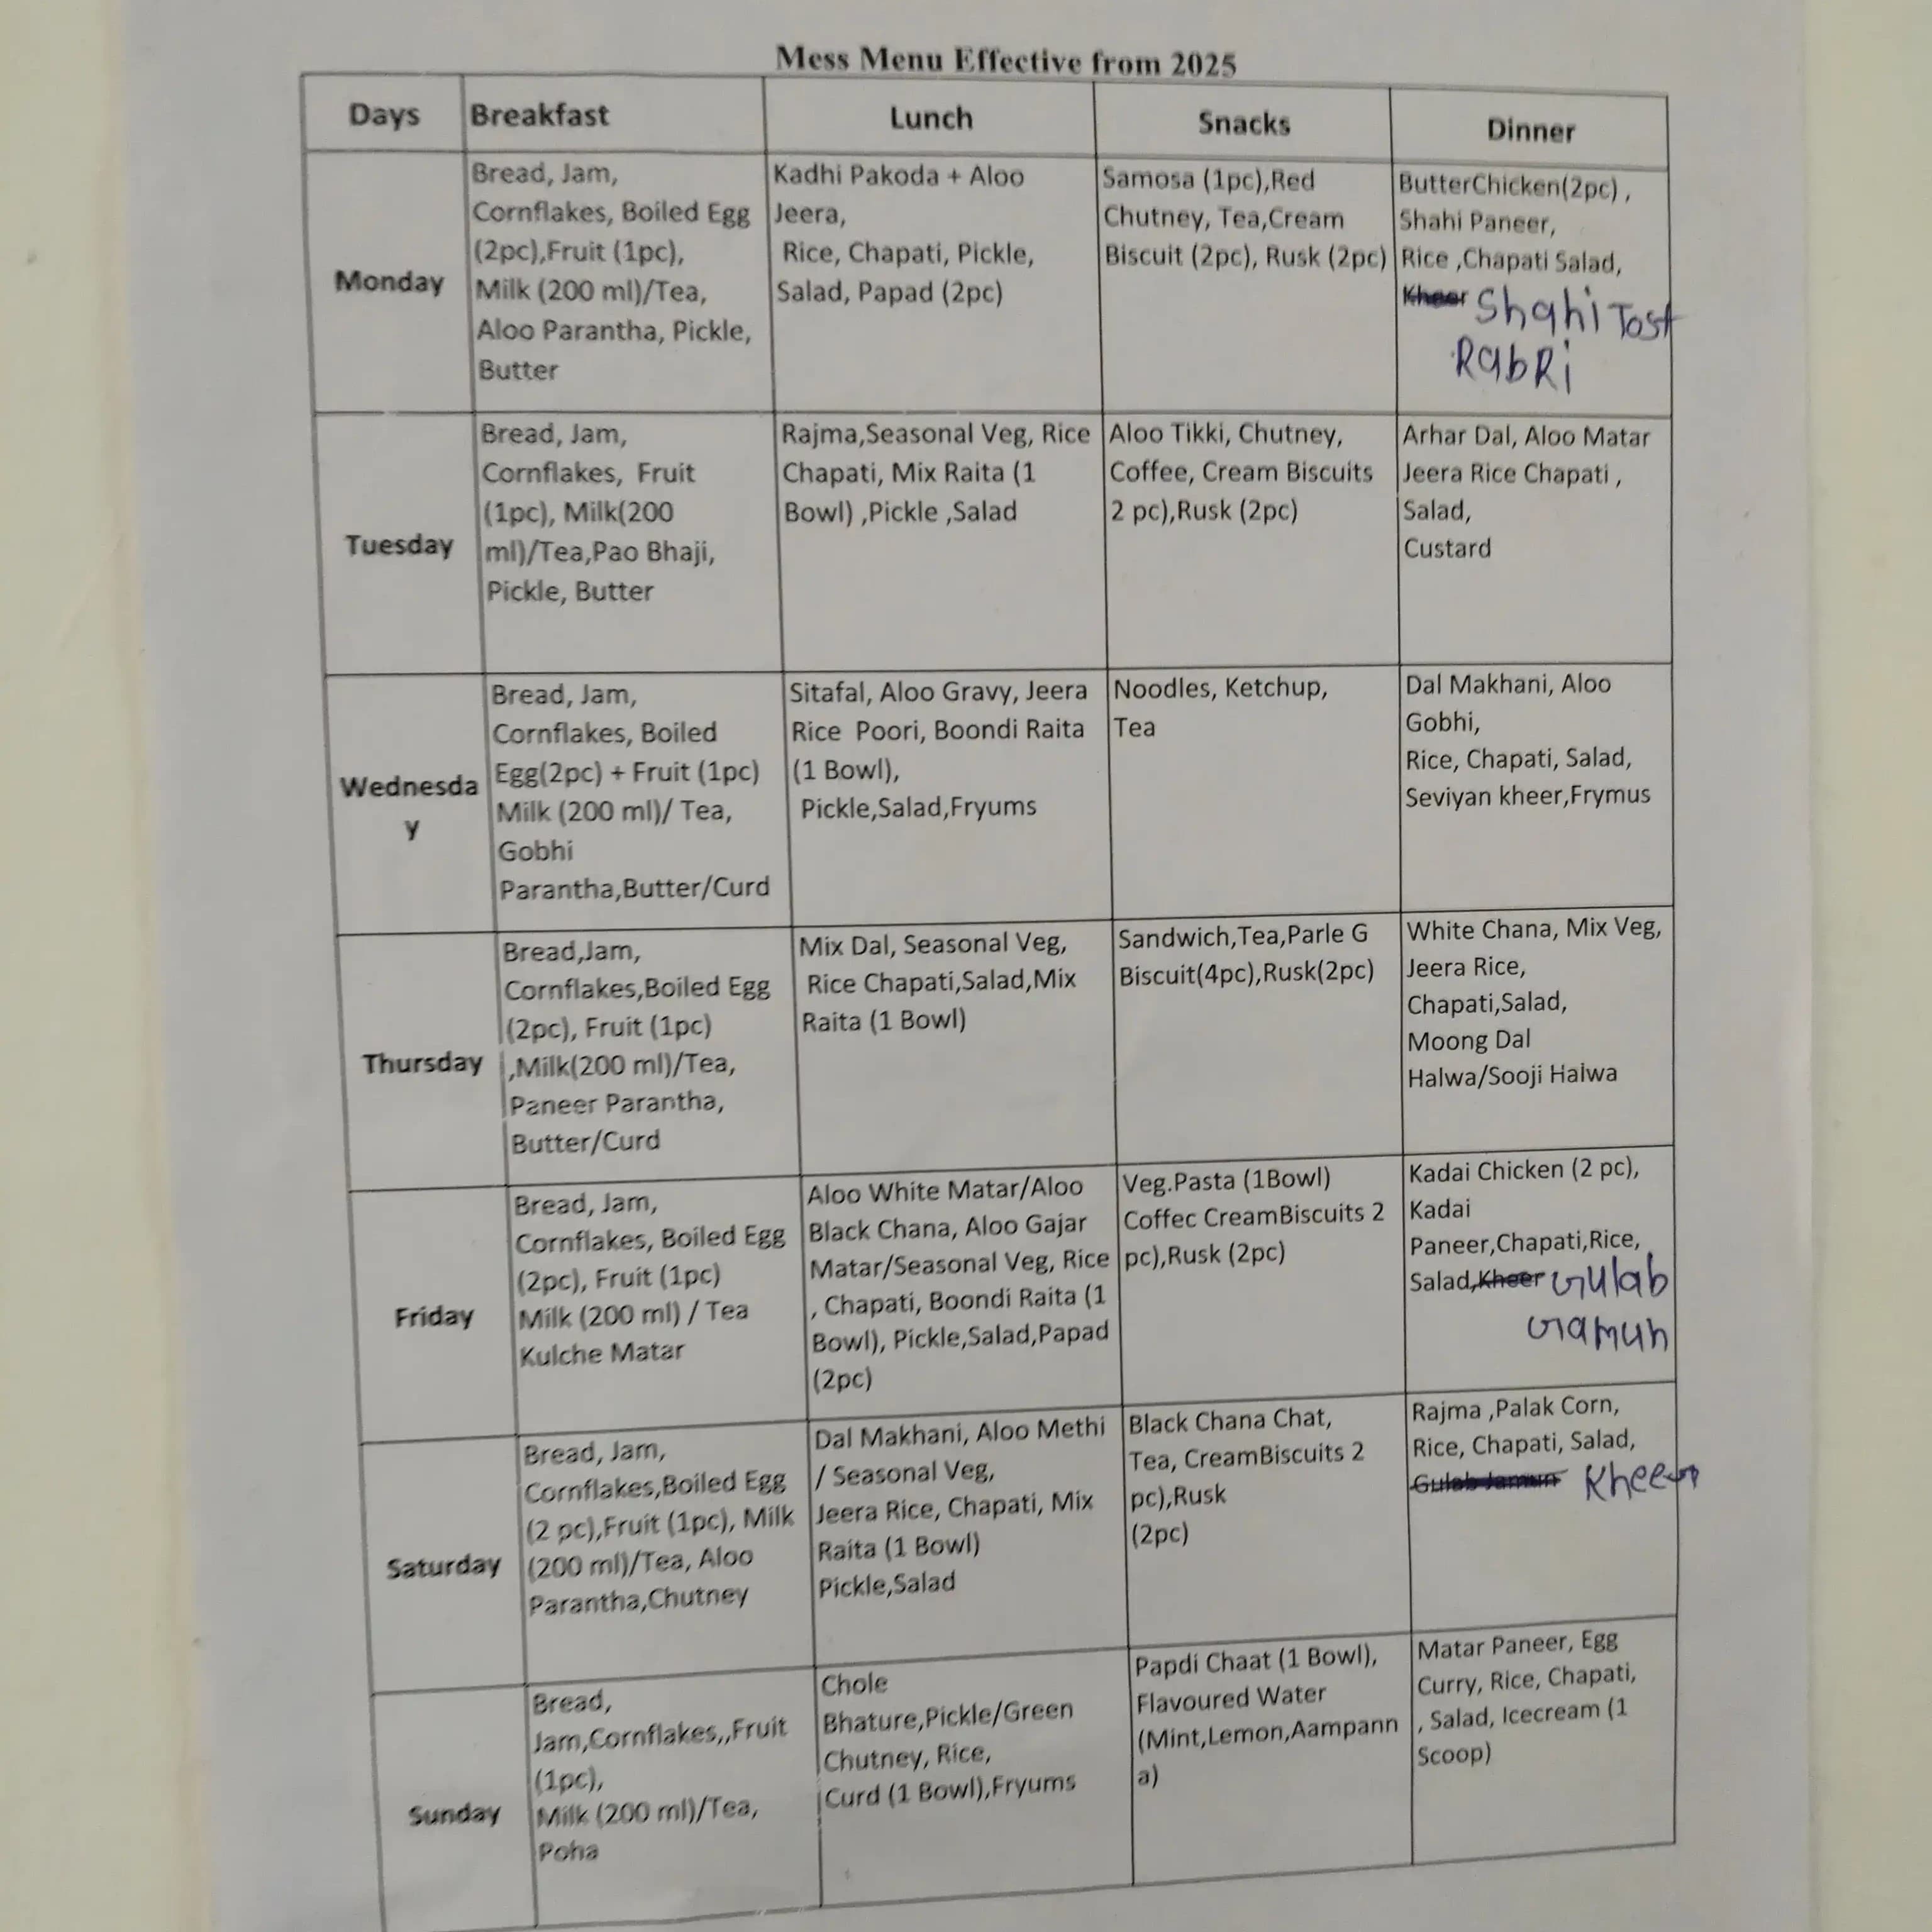 Mess Menu Effective from 2025
Days
Breakfast
Lunch
Snacks
Dinner
Monday
Bread, Jam,
Cornflakes, Boiled Egg
(2pc),Fruit (1pc),
Milk (200 ml)/Tea,
Aloo Parantha, Pickle,
Butter
Kadhi Pakoda + Aloo
Jeera,
Rice, Chapati, Pickle,
Salad, Papad (2pc)
Samosa (1pc),Red
Chutney, Tea,Cream
Biscuit (2pc), Rusk (2pc)
ButterChicken(2pc) ,
Shahi Paneer,
Rice ,Chapati Salad,
Kheer Shahi Tost
RabRi
Tuesday
Bread, Jam,
Cornflakes, Fruit
(1pc), Milk(200
ml)/Tea,Pao Bhaji,
Pickle, Butter
Rajma,Seasonal Veg, Rice
Chapati, Mix Raita (1
Bowl) ,Pickle ,Salad
Aloo Tikki, Chutney,
Coffee, Cream Biscuits
2 pc),Rusk (2pc)
Arhar Dal, Aloo Matar
Jeera Rice Chapati ,
Salad,
Custard
Wednesda
y
Bread, Jam,
Cornflakes, Boiled
Egg(2pc) + Fruit (1pc)
Milk (200 ml)/ Tea,
Gobhi
Parantha,Butter/Curd
Sitafal, Aloo Gravy, Jeera
Rice Poori, Boondi Raita
(1 Bowl),
Pickle,Salad,Fryums
Noodles, Ketchup,
Tea
Dal Makhani, Aloo
Gobhi,
Rice, Chapati, Salad,
Seviyan kheer,Frymus
Thursday
Bread,Jam,
Cornflakes,Boiled Egg
(2pc), Fruit (1pc)
,Milk(200 ml)/Tea,
Paneer Parantha,
Butter/Curd
Mix Dal, Seasonal Veg,
Rice Chapati,Salad,Mix
Raita (1 Bowl)
Sandwich,Tea,Parle G
Biscuit(4pc),Rusk(2pc)
White Chana, Mix Veg,
Jeera Rice,
Chapati,Salad,
Moong Dal
Halwa/Sooji Halwa
Friday
Bread, Jam,
Cornflakes, Boiled Egg
(2pc), Fruit (1pc)
Milk (200 ml) / Tea
Kulche Matar
Aloo White Matar/Aloo
Black Chana, Aloo Gajar
Matar/Seasonal Veg, Rice
, Chapati, Boondi Raita (1
Bowl), Pickle,Salad,Papad
(2pc)
Veg.Pasta (1Bowl)
Coffec CreamBiscuits 2
pc),Rusk (2pc)
Kadai Chicken (2 pc),
Kadai
Paneer,Chapati,Rice,
Salad,Kheer Gulab
Gamun
Saturday
Bread, Jam,
Cornflakes,Boiled Egg
(2 pc),Fruit (1pc), Milk
(200 ml)/Tea, Aloo
Parantha,Chutney
Dal Makhani, Aloo Methi
/ Seasonal Veg,
Jeera Rice, Chapati, Mix
Raita (1 Bowl)
Pickle,Salad
Black Chana Chat,
Tea, CreamBiscuits 2
pc),Rusk
(2pc)
Rajma ,Palak Corn,
Rice, Chapati, Salad,
Gulab Jamun Kheer
Sunday
Bread,
Jam,Cornflakes,,Fruit
(1pc),
Milk (200 ml)/Tea,
Poha
Chole
Bhature,Pickle/Green
Chutney, Rice,
Curd (1 Bowl),Fryums
Papdi Chaat (1 Bowl),
Flavoured Water
(Mint,Lemon,Aampann
a)
Matar Paneer, Egg
Curry, Rice, Chapati,
, Salad, Icecream (1
Scoop)